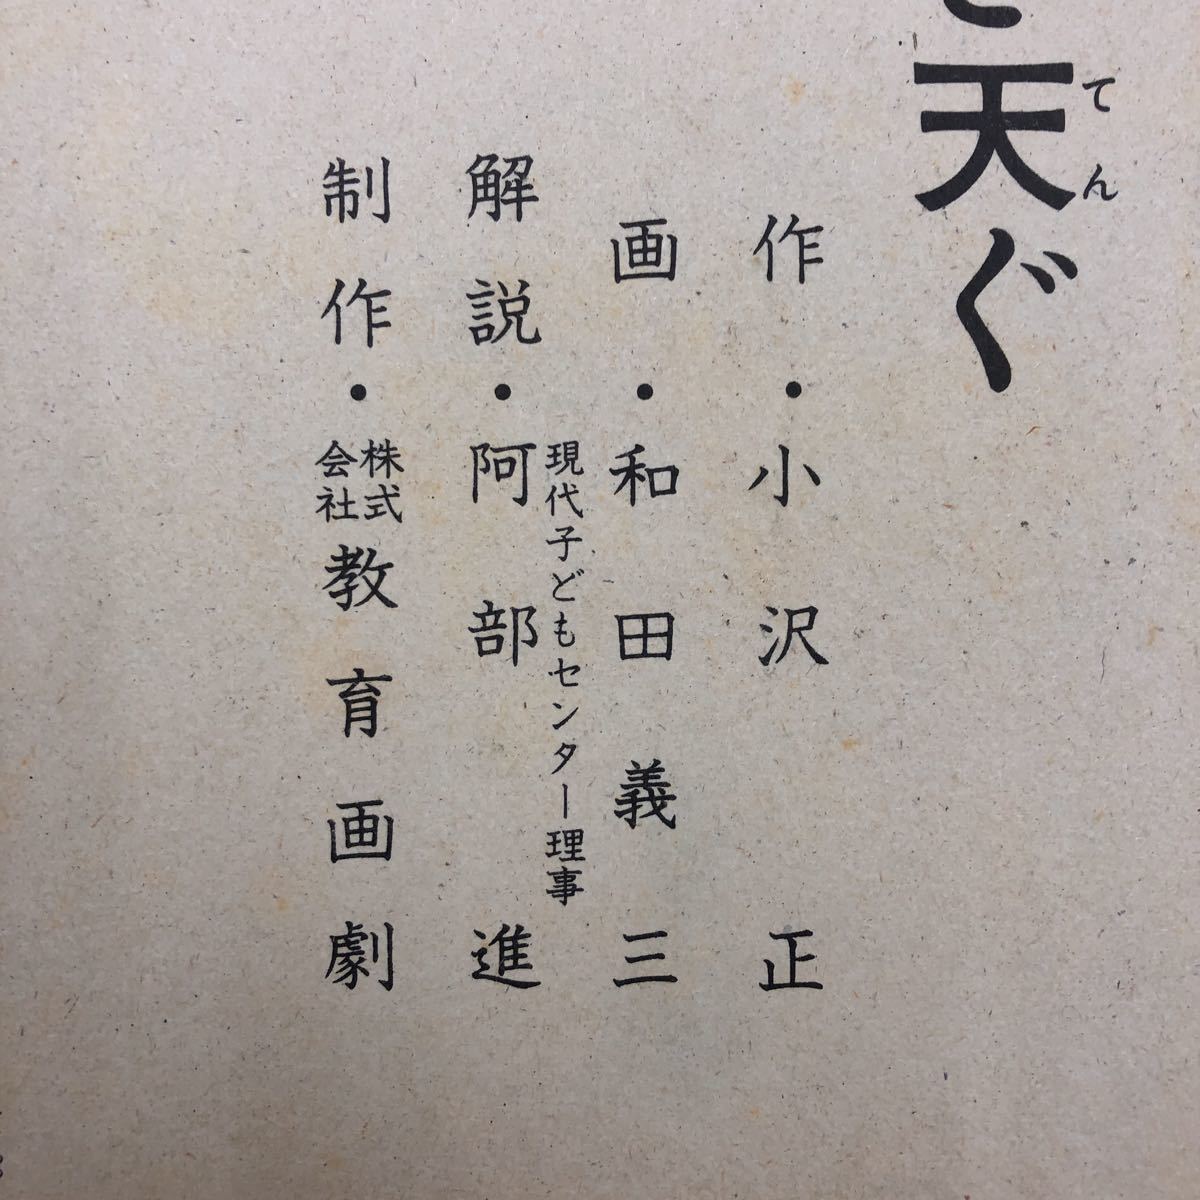 天ぐ
てん
作・小沢 正
画・和田義三
現代子どもセンター理事
解説・阿部 進
制作・株式会社教育画劇